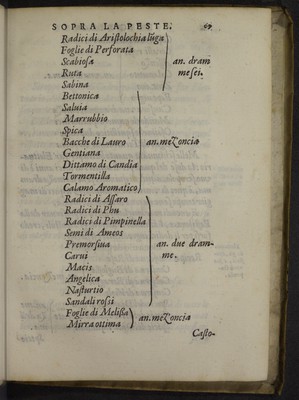 SOPRA LA PESTE. 69
Radici di Aristolochia lũga
Foglie di Perforata
Scabiosa an. dram
Ruta me sei.
Sabina
Bettonica
Saluia
Marrubbio
Spica
Bacche di Lauro an. mezoncia
Gentiana
Dittamo di Candia
Tormentilla
Calamo Aromatico
Radici di Assaro
Radici di Phu
Radici di Pimpinella
Semi di Ameos
Premorsiua an. due dram-
Carui me.
Macis
Angelica
Nasturtio
Sandali rossi
Foglie di Melissa an. mezoncia
Mirra ottima
Casto-